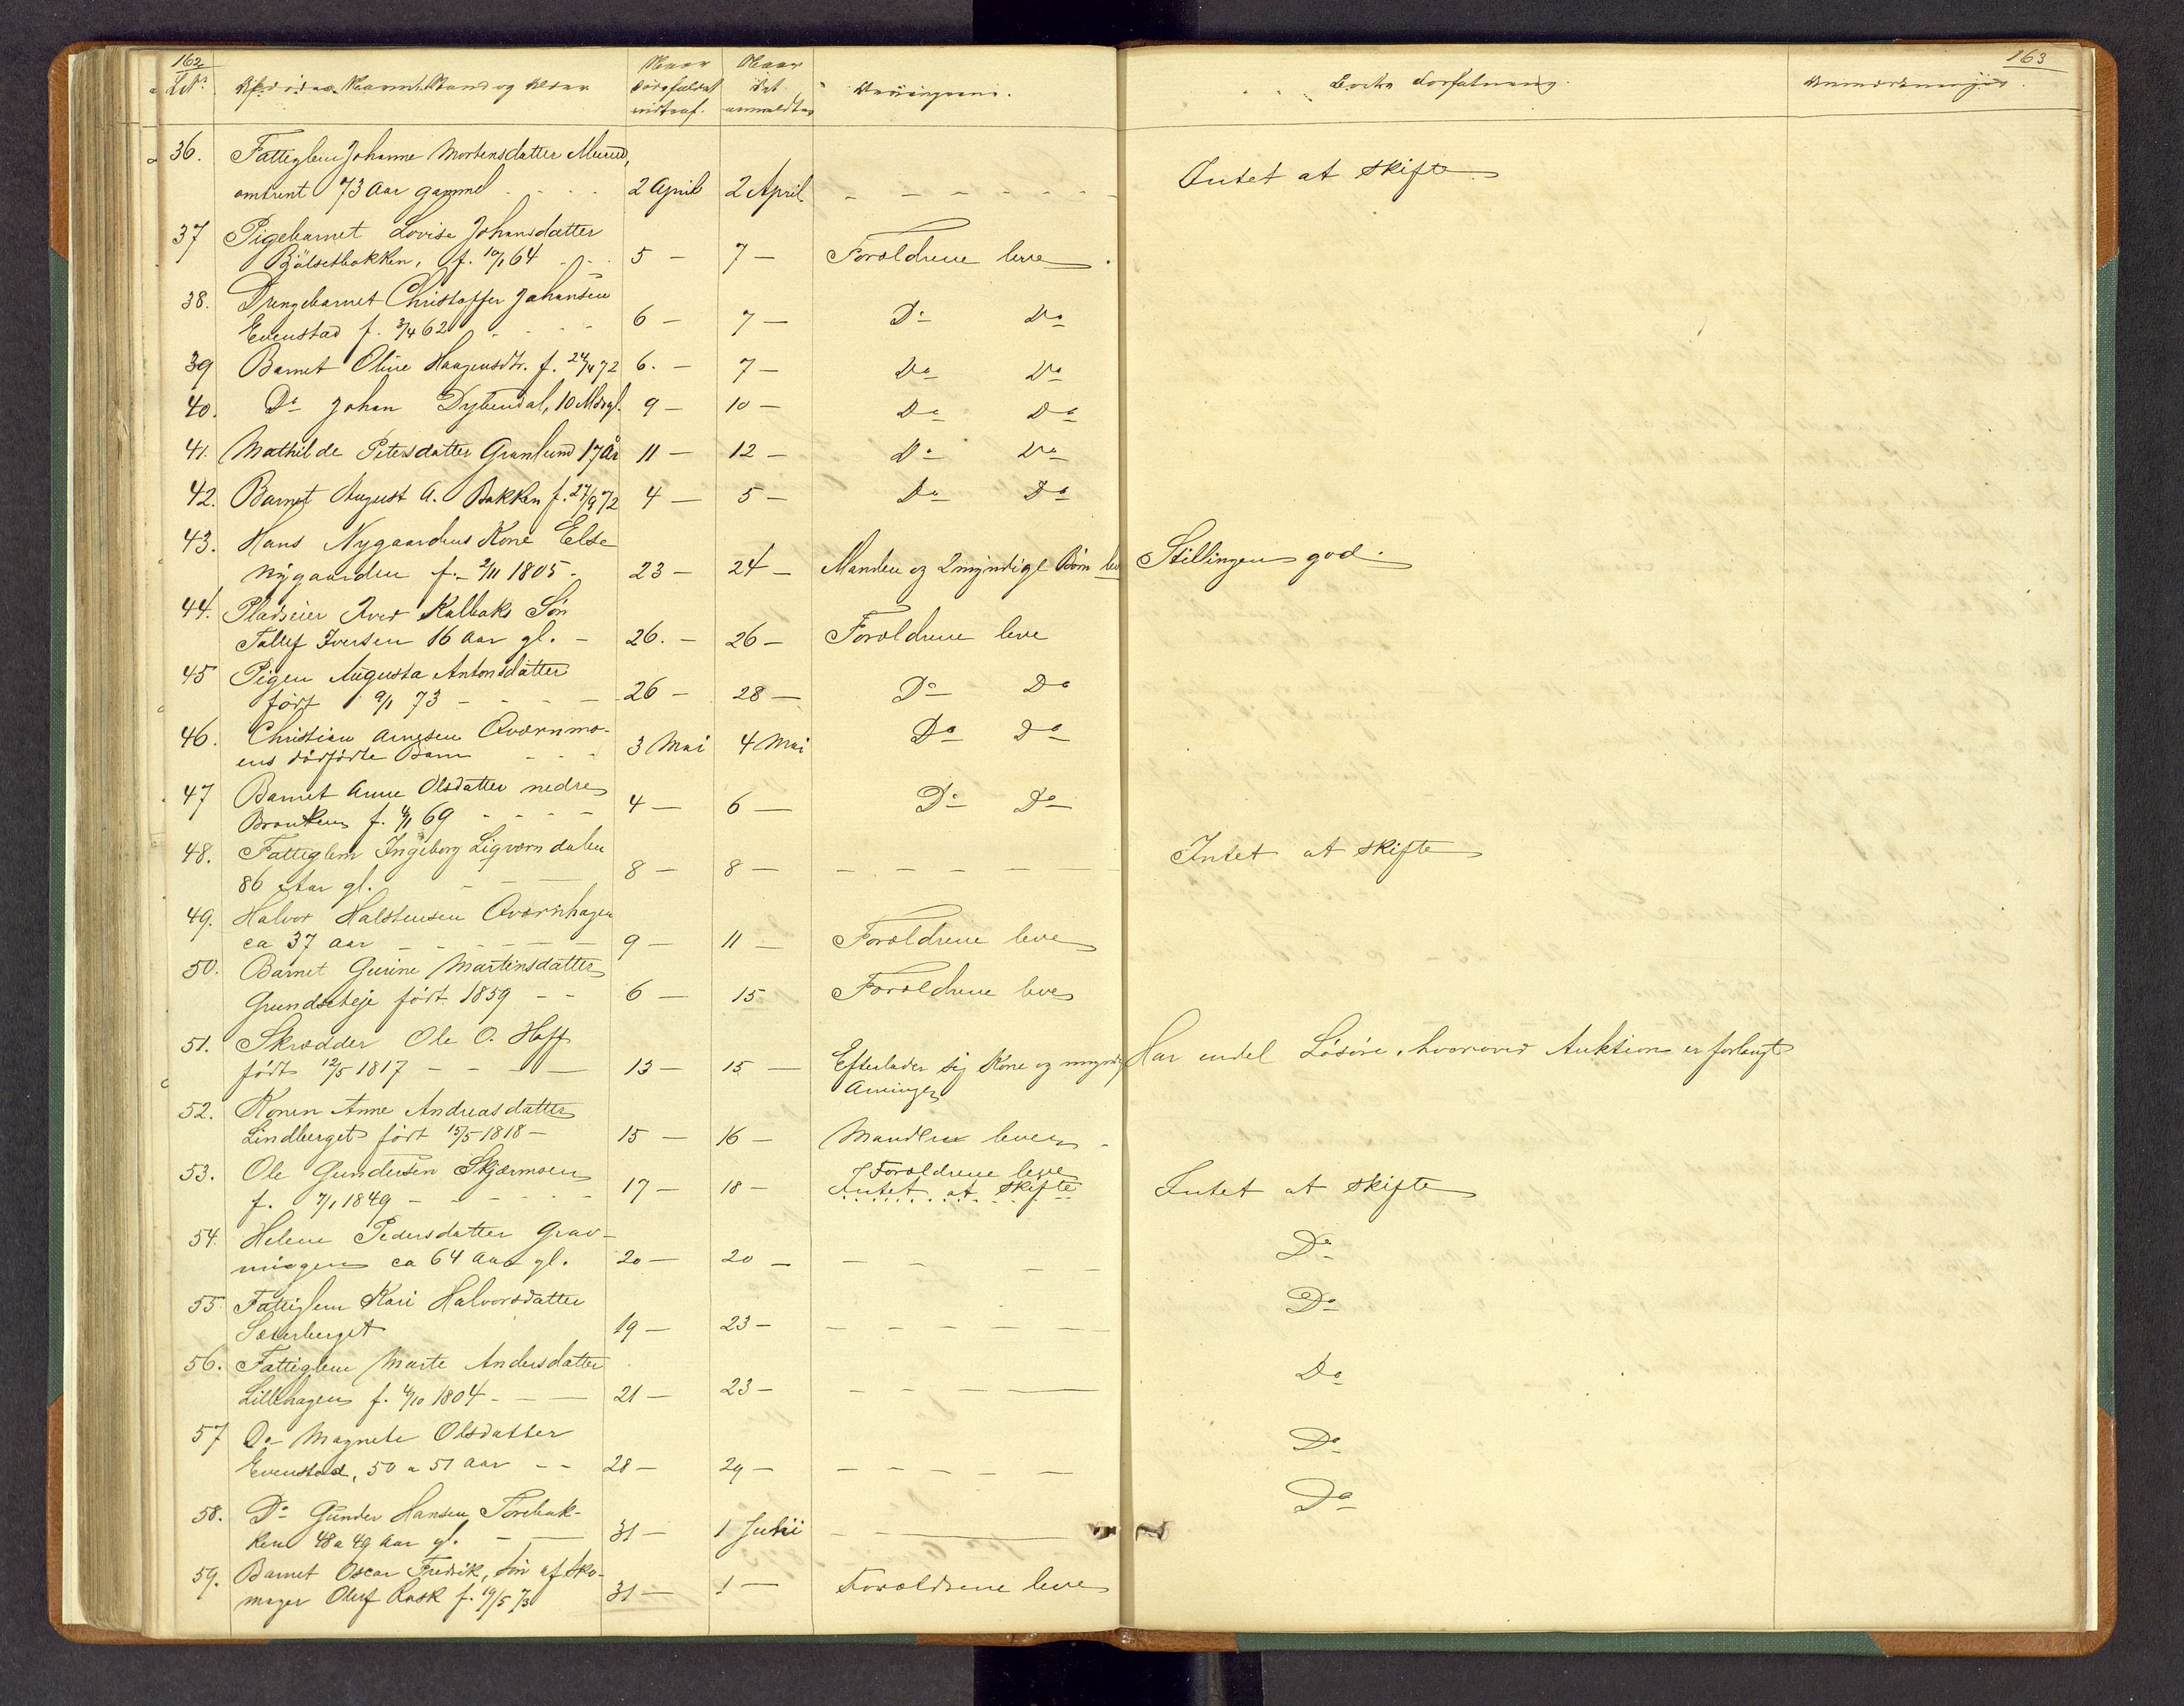 162
163
LNo Afdødes Navn, Stand og Alder
Naar Dødsfaldet indtraf.
Naar det anmeldtes
Arvingerne.
Boets Forfatning.
Anmærkninger.
36. Fattiglem Johanne Mortensdatter
omtrent 73 Aar gammel 2 April 2 April - - - - - Intet at skifte
37 Pigebarnet Lovise Johansdatter
f. 10/1 64 5 - 7 - Forældrene leve.
38. Drengebarnet Christoffer Johansen
Evenstad f. 3/4 62 6 - 7 - Do Do
39 Barnet Oline Haagensdtr. f. 24/4 72 6. - 7 - Do Do
40. Do Johan Dybendal, 10 Mdr gl. 9 - 10 - Do Do
41. Mathilde Petersdatter Granlund 17 År 11 - 12 - Do Do
42. Barnet August A. Bakken f. 27/9 72 4 - 5 - Do Do
43. Hans Nygaardens Kone Else
Nygaarden f. 2/11 1805 - 23 - 24 - Manden og 2 myndige Børn lev Stillingen god.
44. Pladseier Iver Kalbaks Søn
Tollef Iversen 16 Aar gl. - 26. - 26 - Forældrene leve
45 Pigen Augusta Antonsdatter
født 9/1 73 - - - 26 - 28 - Do Do
46. Christian Arnesen Qværnmo-
ens dødfødte Barn 3 Mai 4 Mai Do Do
47 Barnet Anne Olsdatter nedre
f. 4/1 69 - - - 4 - 6 - Do Do
48. Fattiglem Ingeborg Ligværndalen
86 Aar gl. - - - 8 - 8 - - - - - - Intet at skifte
49. Halvor Halstensen Qværnhagen
ca 37 Aar - - - - 9 - 11 - Forældrene leve
50. Barnet Gurine Martinsdatter
Grundseteje født 1859 - - 6 - 15 Forældrene leve
51. Skrædder Ole O. Hoff
født 12/5 1817 - - - 13 - 15 - Efterlader sig Kone og myndg Har endel Løsøre, hvorover Auktion er forlangt
Arvinger
52. Konen Anne Andreasdatter
Lindberget født 15/5 1818 - 15 - 16 - Manden lever
53. Ole Gundersen Skjærmoen Forældrene leve
f. 7/1 1849 - - - 17 - 18 - Intet at skifte Intet at skifte
54. Helene Pedersdatter Grav-
ca 64 Aar gl. 20 - 20 - - - - - Do
55 Fattiglem Kari Halvorsdatter
Sæterberget 19 - 23 - - - - - - Do
56. Fattiglem Marte Andersdatter
Lillehagen f. 4/10 1804 - - 21 - 23 - - - - - Do
57 Do Magnete Olsdatter
Evenstad, 50 a 51 Aar - - 28 - 29 - - - - - - Do
58. Do Gunder Hansen Torebak-
ken 48 a 49 Aar gl. - - 31 - 1 Juni - - - Do
59. Barnet Oscar Fredrik, Søn af Sko-
mager Oluf Rask f. 19/5 73 31 - 1 - Forældrene leve